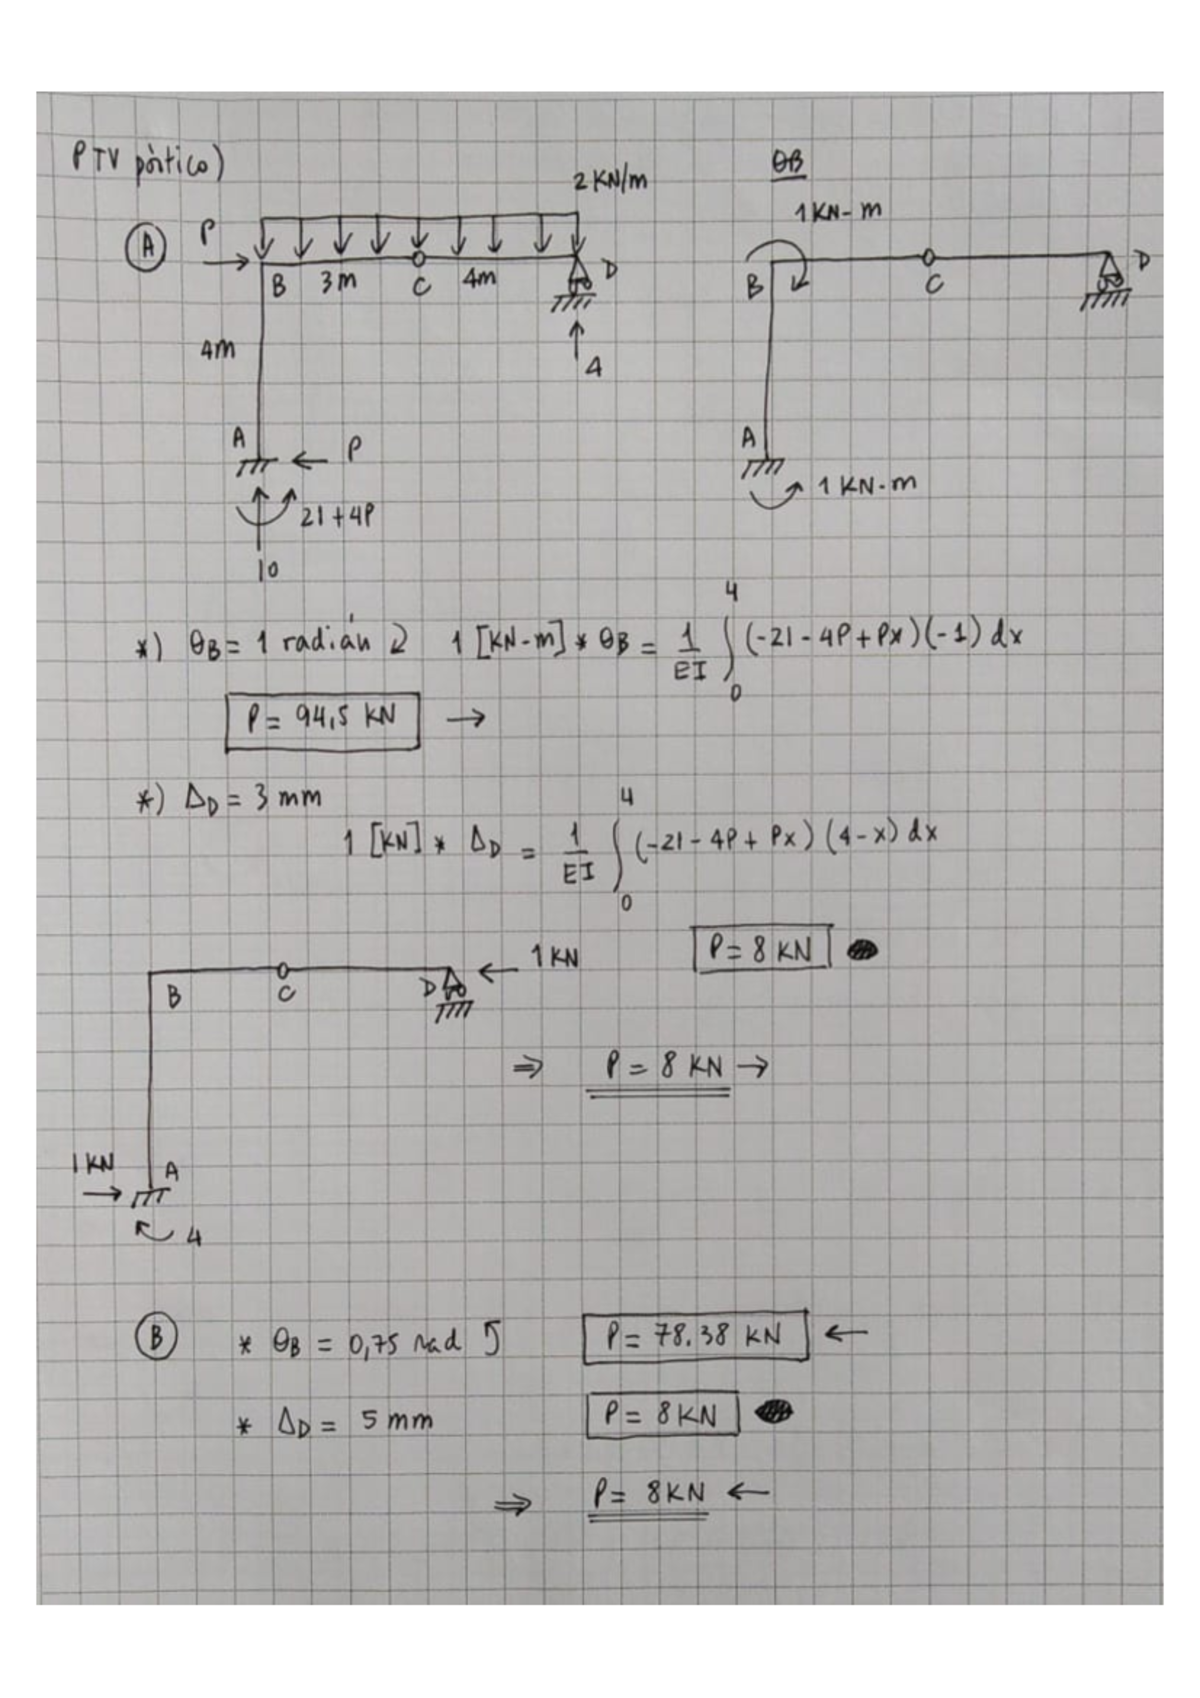 PTV pórtico)
θB
2 KN/m
1 KN-m
A P
B 3m C 4m D
B C D
4m
4
A P
A
21+4P
1 KN-m
10
*) θB = 1 radián ↻ 1 [KN-m] * θB = 1/EI ∫₀⁴ (-21-4P+Px)(-1) dx
P = 94,5 KN →
*) ΔD = 3 mm
1 [KN] * ΔD = 1/EI ∫₀⁴ (-21-4P+Px)(4-x) dx
P = 8 KN
1 KN
B C D
⇒ P = 8 KN →
1 KN A
4
B * θB = 0,75 rad ↺ P = 78.38 KN ←
* ΔD = 5 mm P = 8 KN
⇒ P = 8 KN ←